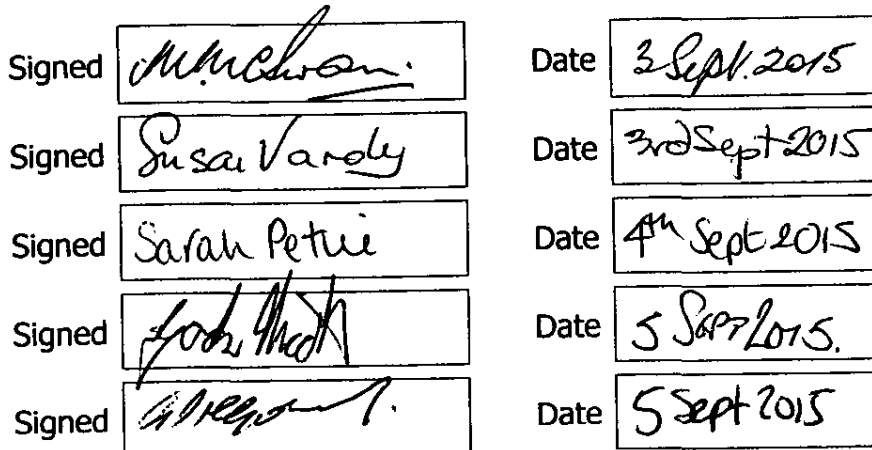 Signed Date 3 Sept. 2015
Signed Susan Vardy Date 3rd Sept 2015
Signed Sarah Petrie Date 4th Sept 2015
Signed Date 5 Sept 2015.
Signed Date 5 Sept 2015